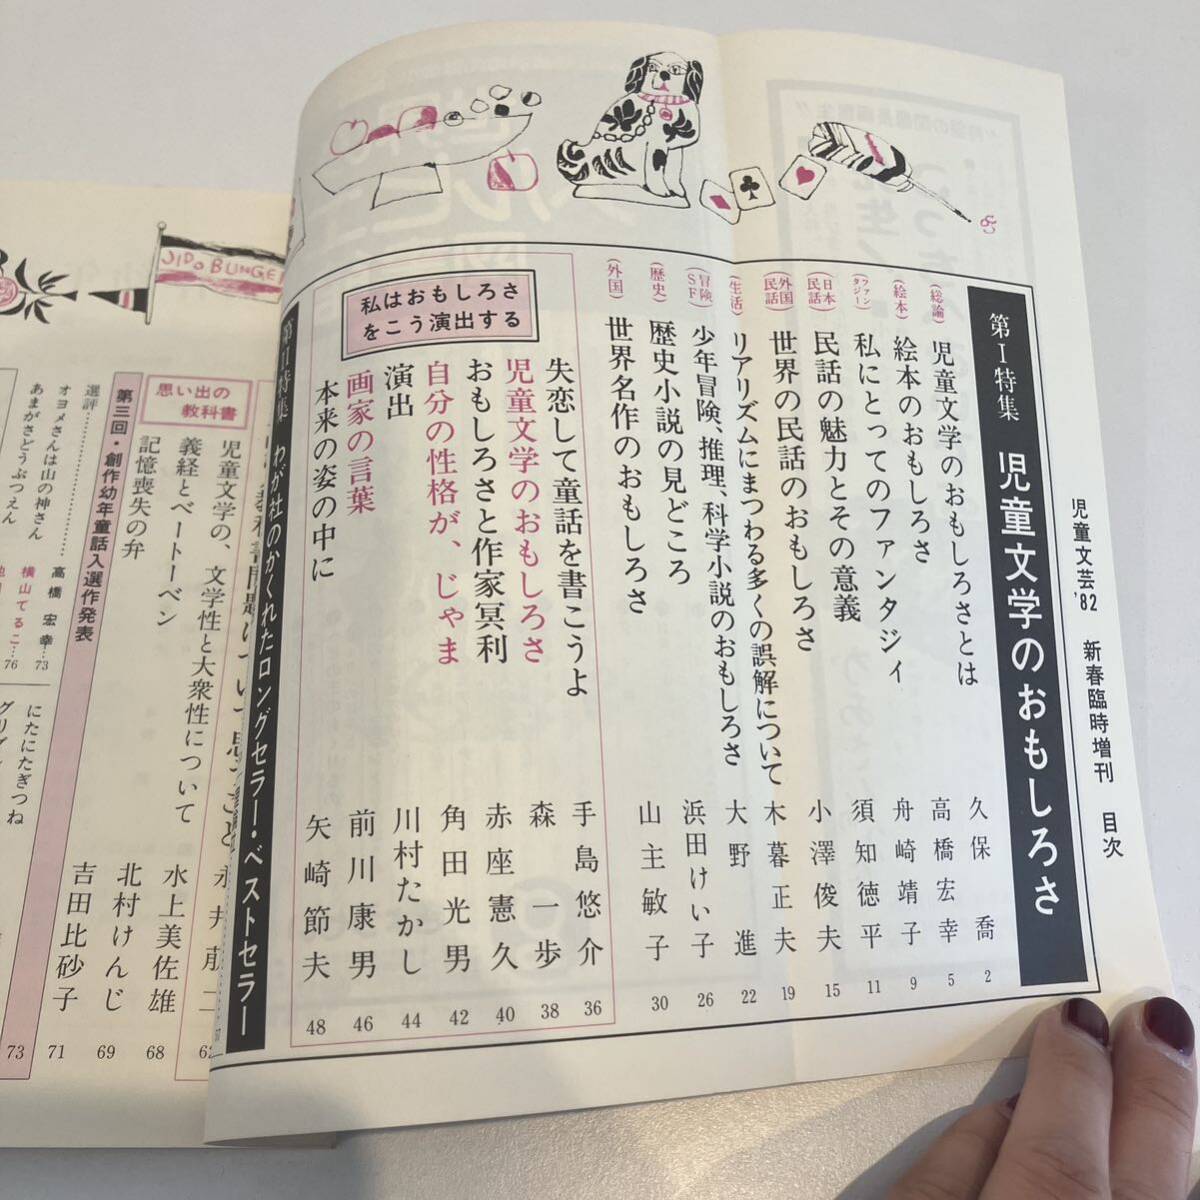 児童文芸'82 新春臨時増刊 目次
第Ⅰ特集 児童文学のおもしろさ
(総論) 児童文学のおもしろさとは 久保喬 2
(絵本) 絵本のおもしろさ 高橋宏幸 5
(ファンタジー) 私にとってのファンタジィ 舟崎靖子 9
(日本民話) 民話の魅力とその意義 須知徳平 11
(外国民話) 世界の民話のおもしろさ 小澤俊夫 15
(生活) リアリズムにまつわる多くの誤解について 木暮正夫 19
(冒険SF) 少年冒険、推理、科学小説のおもしろさ 大野進 22
(歴史) 歴史小説の見どころ 浜田けい子 26
(外国) 世界名作のおもしろさ 山主敏子 30
私はおもしろさをこう演出する
失恋して童話を書こうよ 手島悠介 36
児童文学のおもしろさ 森一歩 38
おもしろさと作家冥利 赤座憲久 40
自分の性格が、じゃま 角田光男 42
演出 川村たかし 44
画家の言葉 前川康男 46
本来の姿の中に 矢崎節夫 48
第Ⅰ特集 わが社のかくれたロングセラー・ベストセラー
JIDO BUNGEI
思い出の教科書
児童文学の、文学性と大衆性について 水上美佐雄 68
義経とベートーベン 北村けんじ 69
記憶喪失の弁 吉田比砂子 71
第三回・創作幼年童話入選作発表 73
選評 高橋宏幸…73
オヨメさんは山の神さん 横山てるこ…76
あまがさどうぶつえん
にたにたぎつね